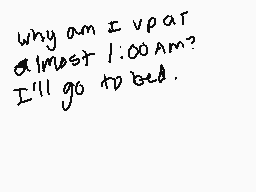 why am I up at
almost 1:00 AM?
I'll go to bed.